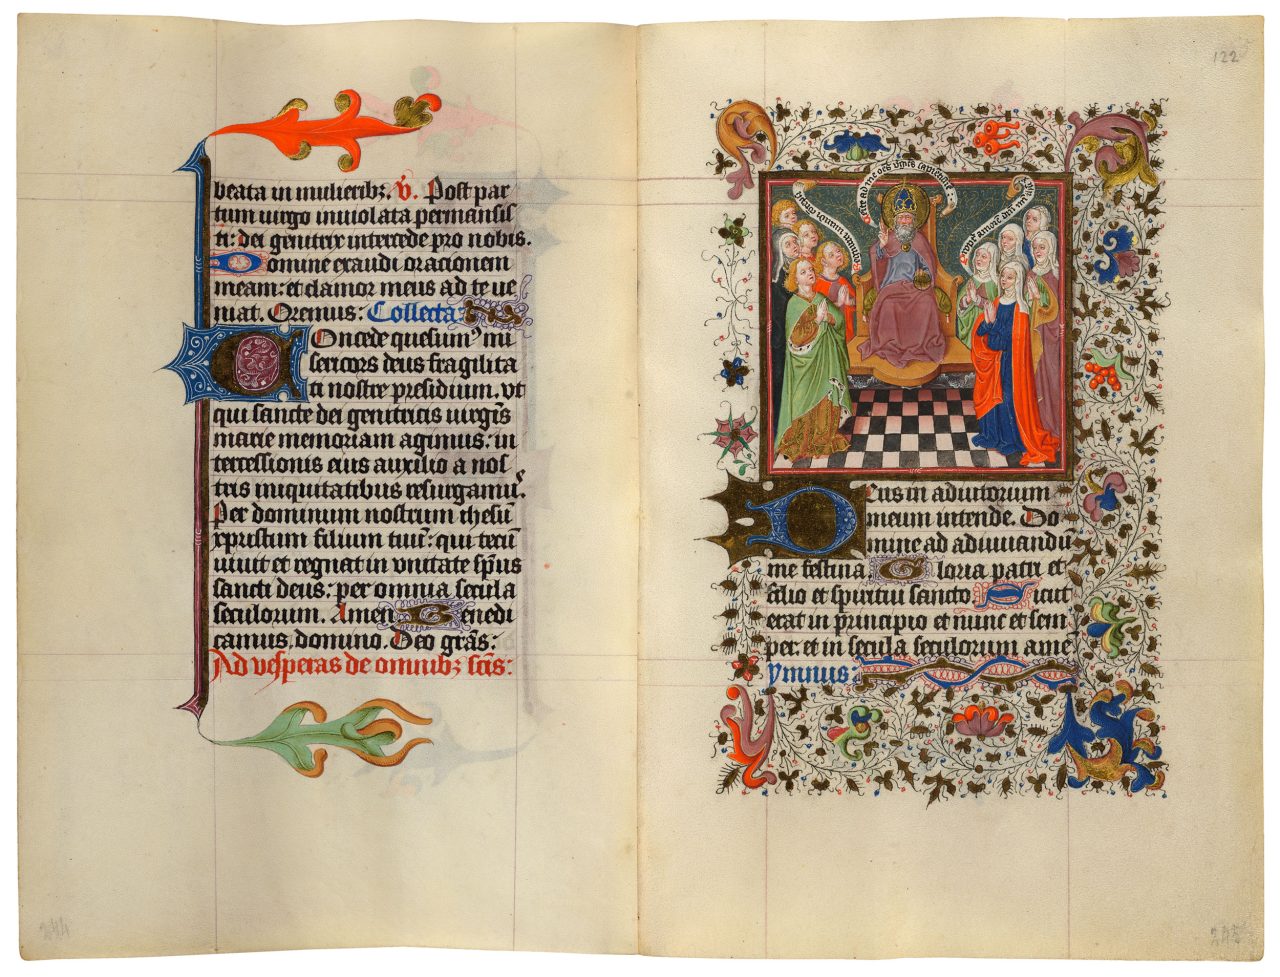 beata in mulieribꝫ. ℣. Post par
tum virgo inviolata permansis
ti: dei genitrix intercede pro nobis.
Domine exaudi orationem
meam: et clamor meus ad te ve
niat. Oremus: Collecta:
Concede quesumꝰ mi
sericors deus fragilita
ti nostre presidium. vt
qui sancte dei genitricis virgīs
marie memoriam agimus: in
tercessionis eius auxilio a nos
tris iniquitatibus resurgamꝰ.
Per dominum nostrum ihesū
xpristum filium tuū: qui tecū
vivit et regnat in vnitate sp̄us
sancti deus: per omnia secula
seculorum. Amen Benedi
camus. domino. Deo gr̄as:
Ad vesperas de omnibꝫ sc̄is:
122
Deus in adiutorium
meum intende. Do
mine ad adiuvandū
me festina. Gloria patri et
filio et spiritui sancto Sicut
erat in principio et nunc et sem
per: et in secula seculorum amē
ymnus:
244